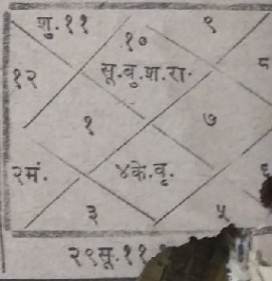 शु.११ ९
१०
८
१२ सू.बु.श.रा.
१ ७
२मं. ४के.वृ.
३ ५
२९सू.११